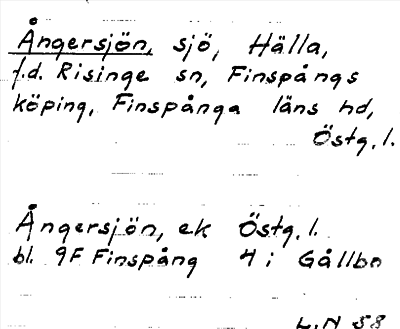 Ångersjön, sjö, Hälla,
f.d. Risinge sn, Finspångs
köping, Finspånga läns hd,
Östg. l.
Ångersjön, ek Östg. l.
bl. 9F Finspång 4 i Gållbo
L.N 58